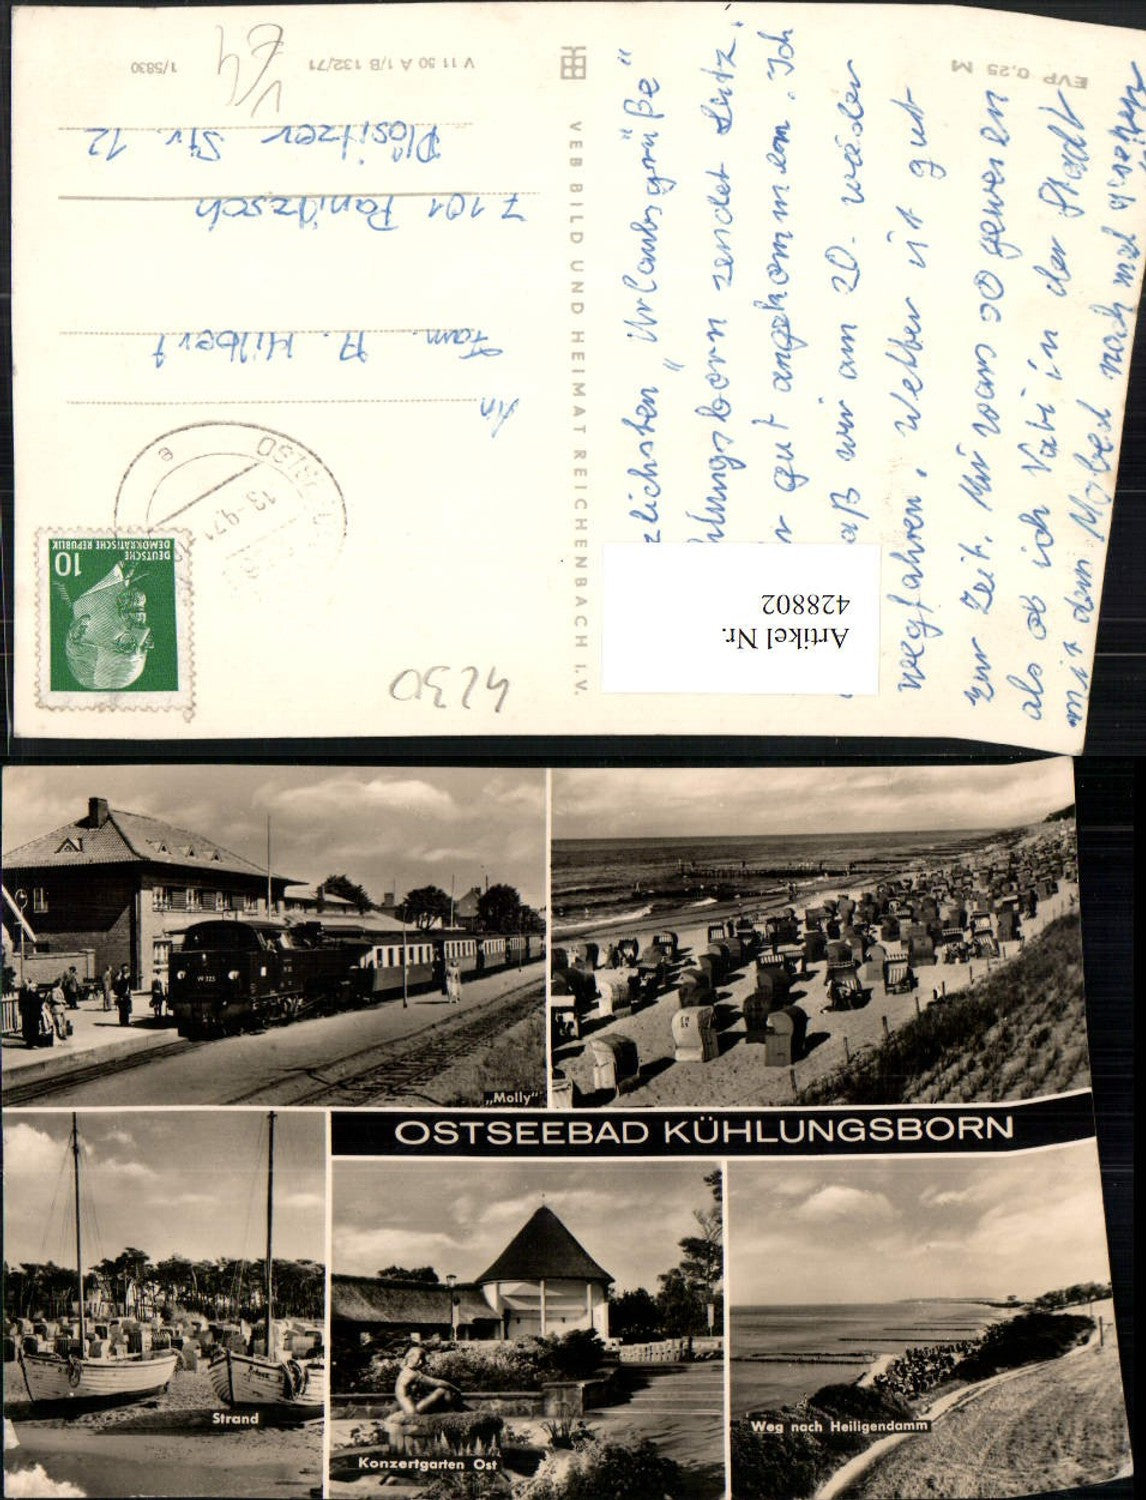 1/5830
V 11 50 A 1/B 132/71
EVP 0,25 M
VEB BILD UND HEIMAT REICHENBACH I.V.
DEUTSCHE
DEMOKRATISCHE REPUBLIK
10
13.-9.71
e
An
Fam. A. Hilbert
7101 Panitzsch
Plösitzer Str. 12
4230
Artikel Nr.
428802
zlichsten „Urlaubsgrüße"
hlungsborn sendet Lutz.
gut angekommen. Ich
aß wir am 20. wieder
wegfahren. Wetter ist gut
zur Zeit. Mir wars so gewesen
als ob ich Vati in der Stadt
mit dem Moped noch mal
„Molly"
OSTSEEBAD KÜHLUNGSBORN
Strand
Konzertgarten Ost
Weg nach Heiligendamm